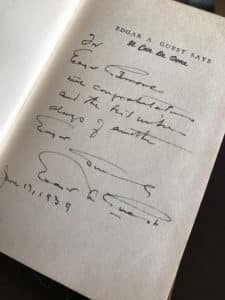 EDGAR A. GUEST SAYS
It Can Be Done
To
Edgar
with congratulations
and the best wishes
always of another
Edgar
Edgar A. Guest
Jan 17, 1939